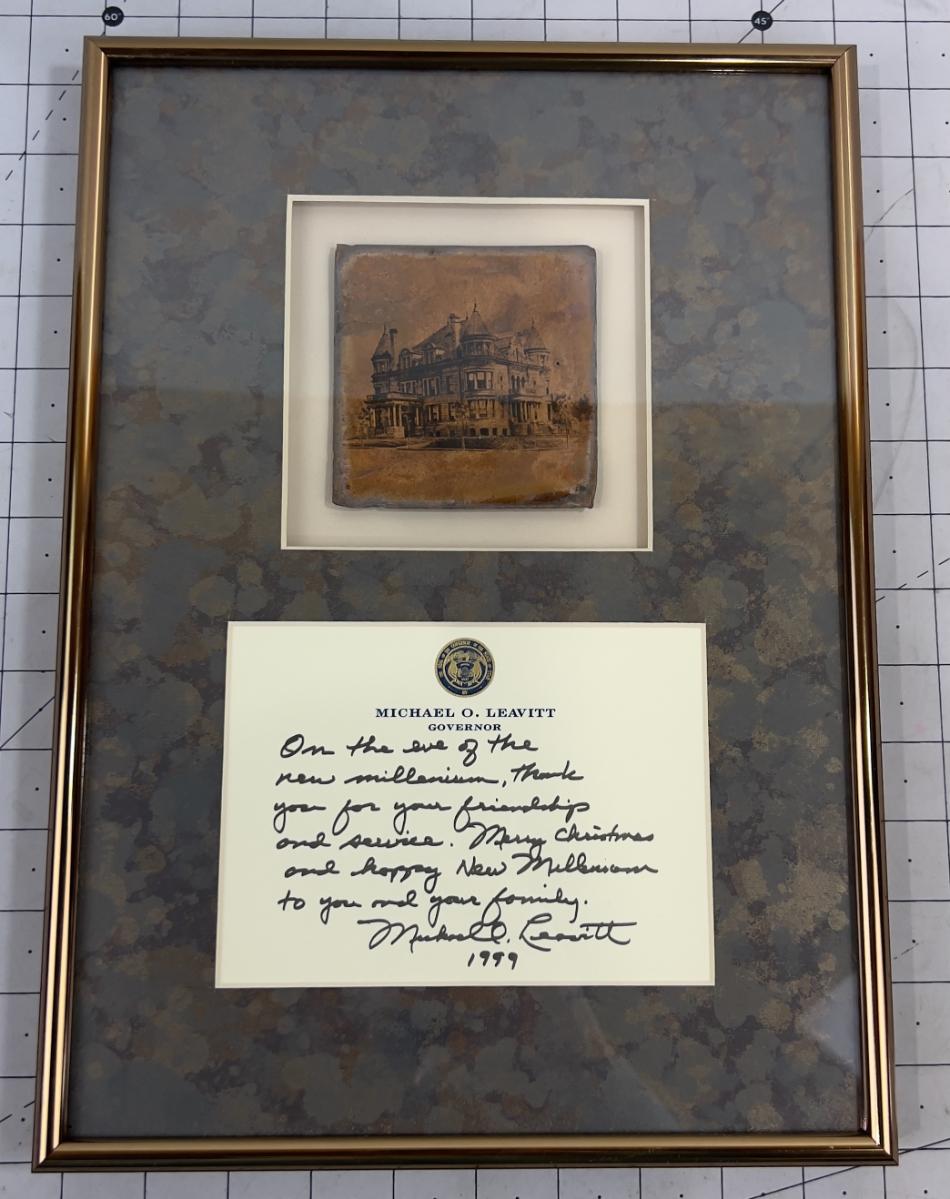 60°
45°
MICHAEL O. LEAVITT
GOVERNOR
On the eve of the
new millenium, thank
you for your friendship
and service. Merry Christmas
and happy New Millenium
to you and your family.
Michael O. Leavitt
1999